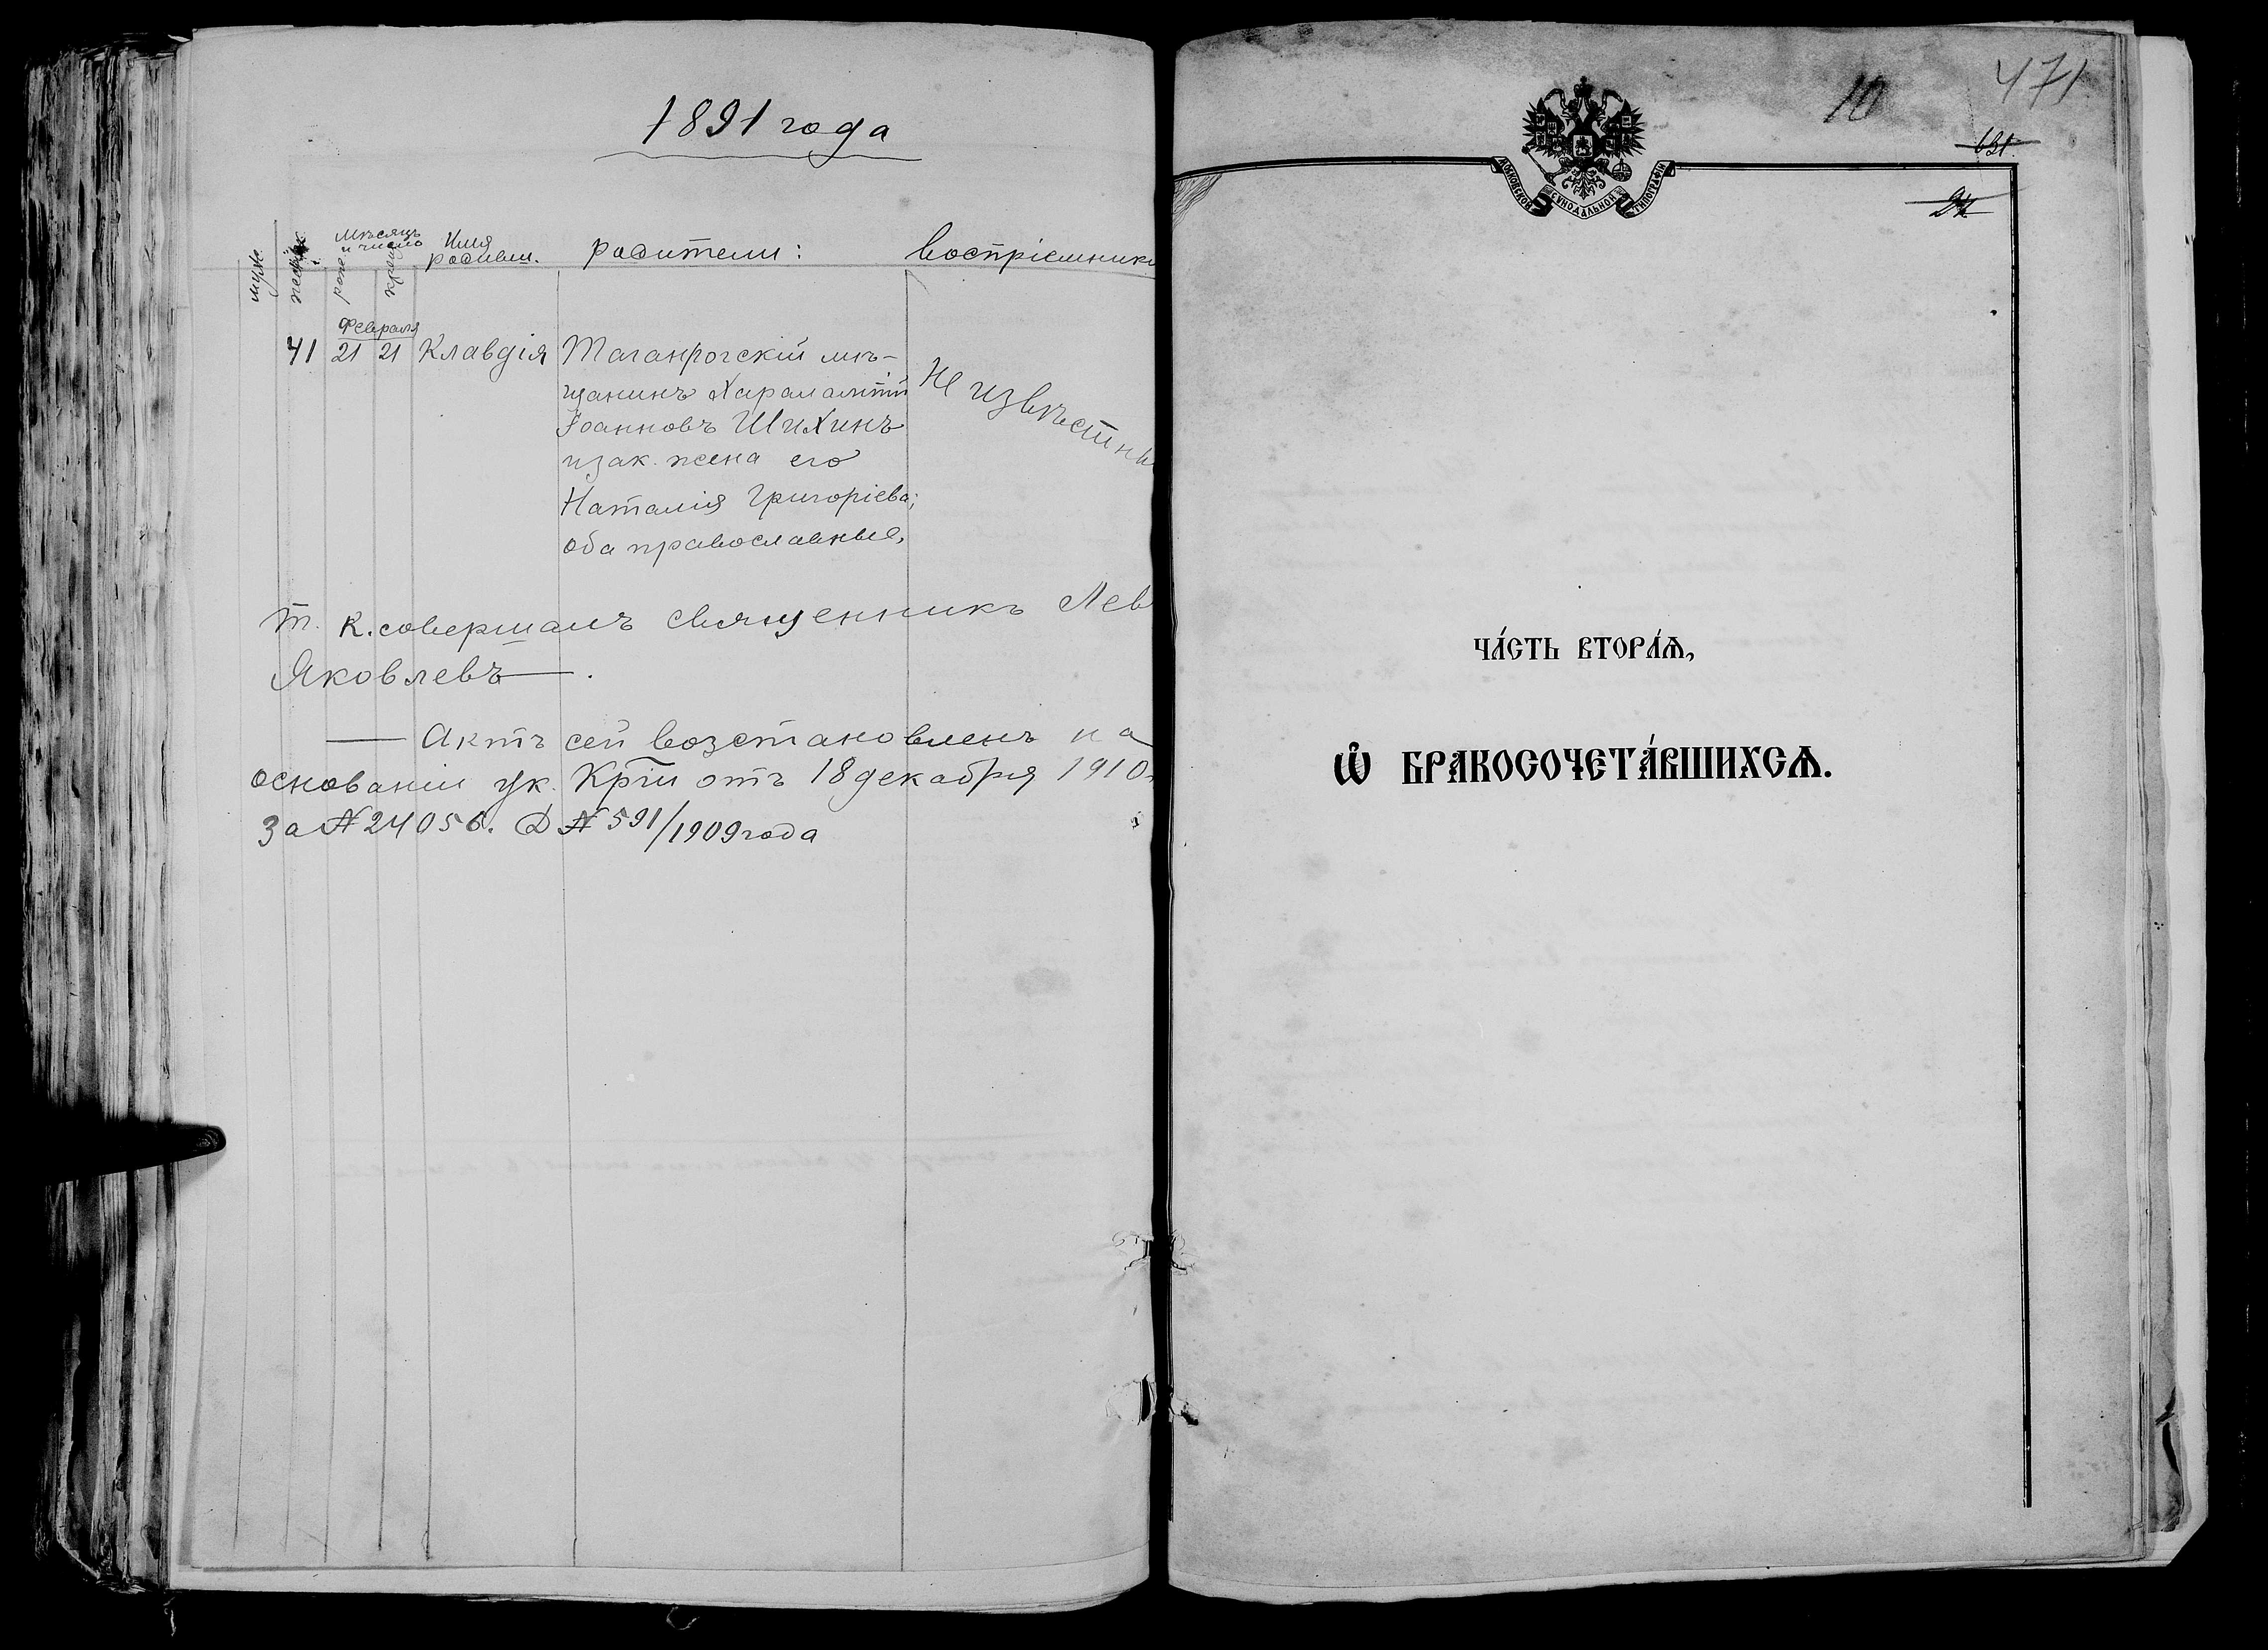 1891 года
муж. женск. Мѣсяцъ и число рожд. крещ. Имя родивш. родители: воспріемники
Февраля
41 21 21 Клавдія Таганрогскій мѣ-
щанинъ Харалампій
Іоанновъ Шихинъ
и зак. жена его
Наталія Григоріева;
оба православные,
Не извѣстны
Т. К. совершалъ священникъ Лев
Яковлевъ.
— Актъ сей возстановленъ на
основаніи ук. Кртіи отъ 18 декабря 1910 г
за № 24056. Д № 591/1909 года
10 471
131
94
МОСКОВСКОЙ СѴНОДАЛЬНОЙ ТИПОГРАФІИ
ЧА́СТЬ ВТОРА́Ѧ,
Ѡ҆ БРАКОСОЧЕТА́ВШИХСѦ.